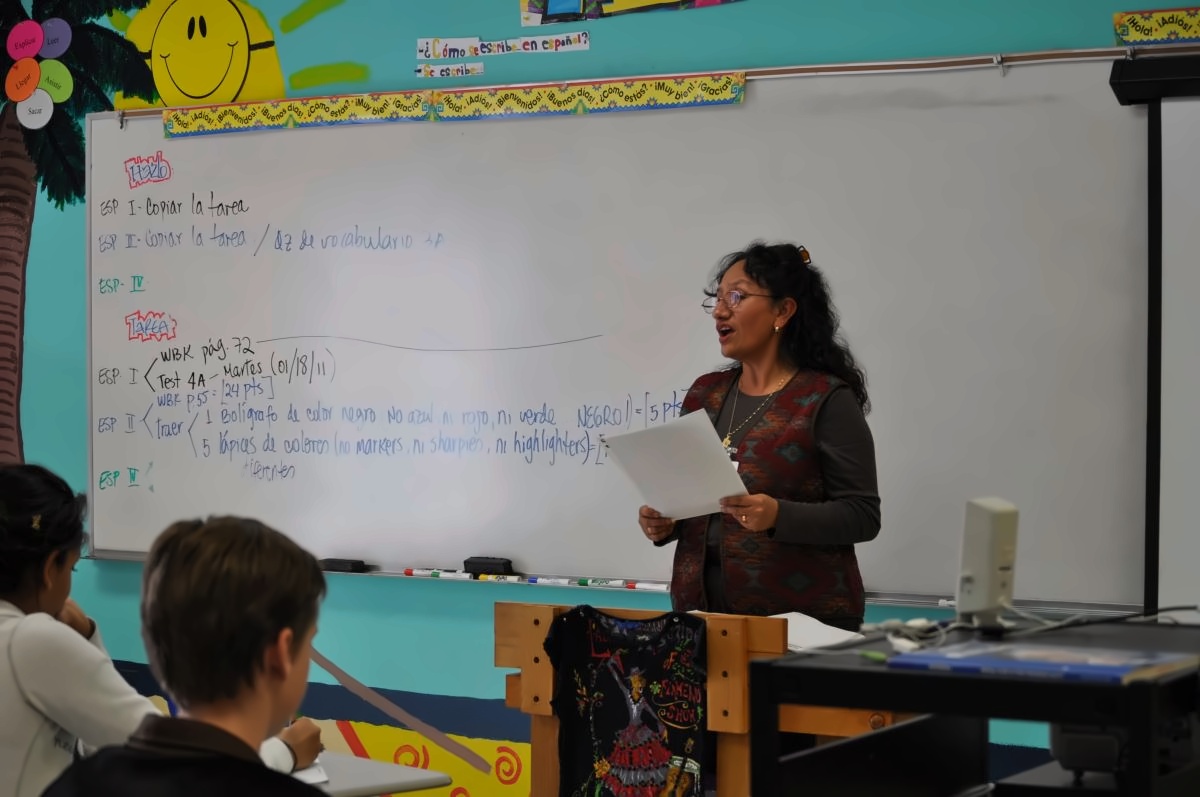 Explicar
Leer
Llegar
Asistir
Sacar
-¿Cómo se escribe en español?
-Se escribe...
¡Hola! ¡Adiós!
¡Bienvenidos! ¡Buenos días! ¿Cómo estás? ¡Muy bien! ¡Gracias! ¡Hola! ¡Adiós! ¡Bienvenidos! ¡Buenos días! ¿Cómo estás? ¡Muy bien! ¡Gracias!
¡Hola! ¡Adiós!
Hazlo
ESP I - Copiar la tarea
ESP II - Copiar la tarea / de vocabulario
ESP - IV
TAREA
ESP. I
WBK pág. 72
Test 4A - Martes (01/18/11)
ESP II
WBK p. 55 = [24 pts]
Traer
1 Bolígrafo de color negro No azul ni rojo, ni verde NEGRO!) = [5 pts
5 lápices de colores (no markers, ni sharpies, ni highlighters) = [
diferentes
ESP IV
FLAMENCO
SHOW